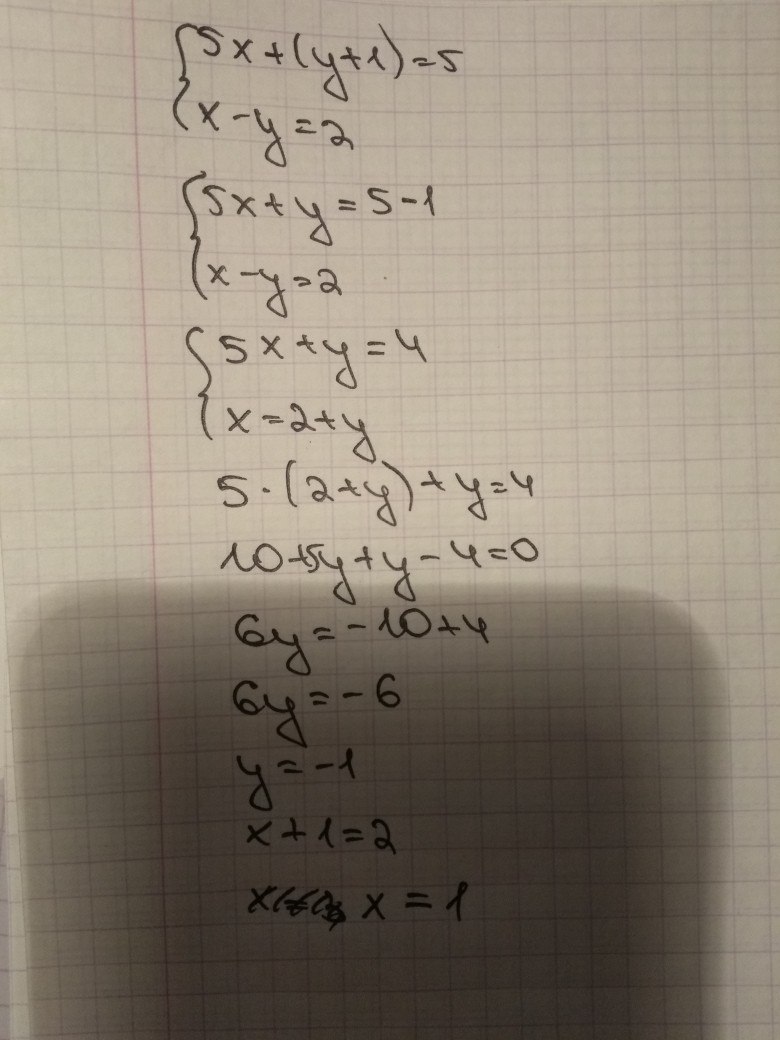 5x+(y+1)=5
x-y=2
5x+y=5-1
x-y=2
5x+y=4
x=2+y
5·(2+y)+y=4
10+5y+y-4=0
6y=-10+4
6y=-6
y=-1
x+1=2
x x=1